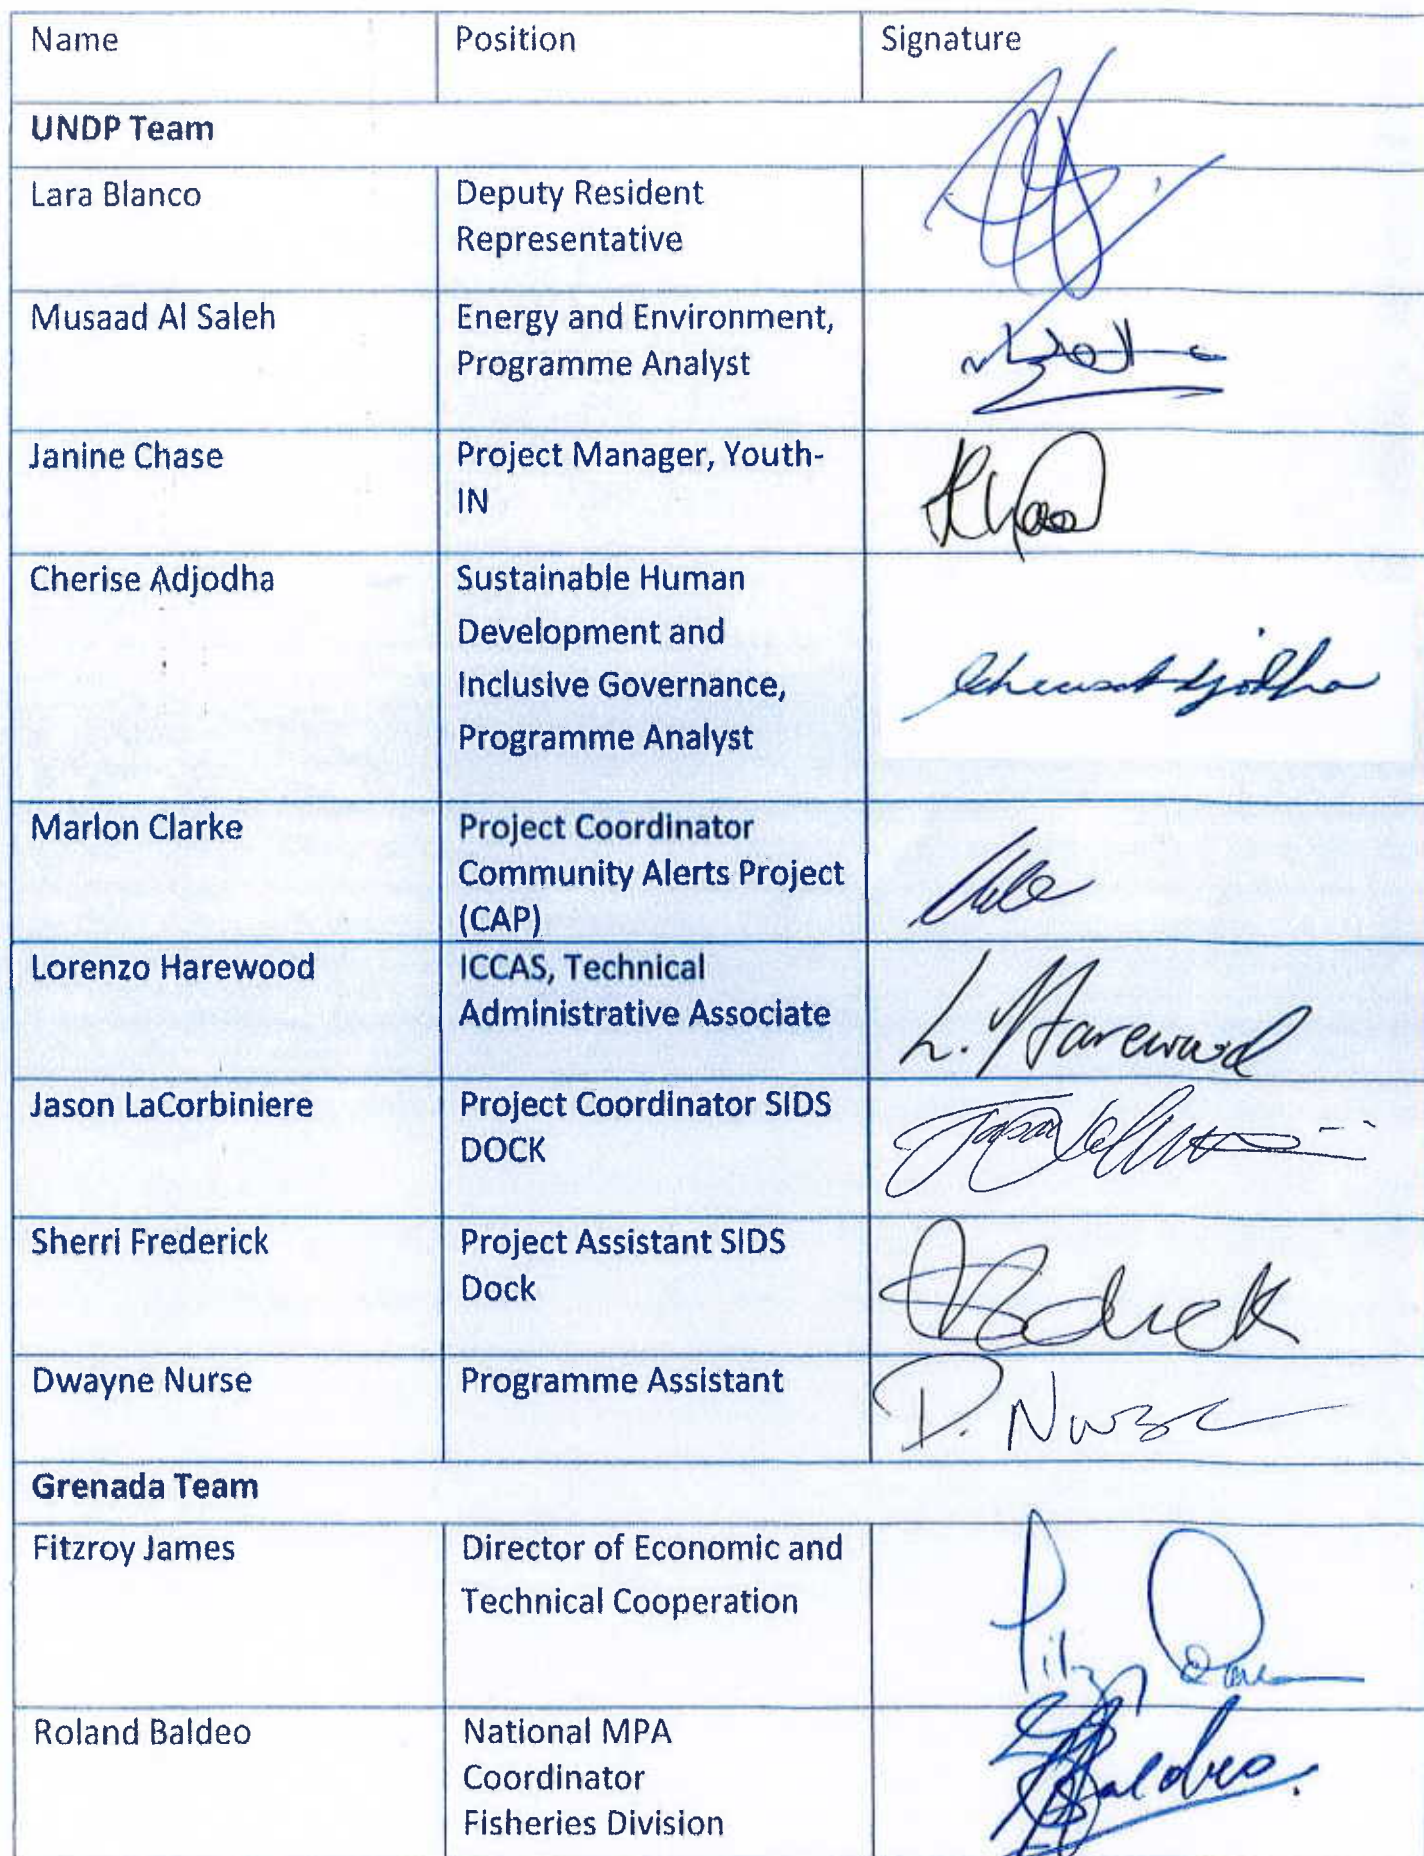 Name Position Signature
UNDP Team
Lara Blanco Deputy Resident
Representative
Musaad Al Saleh Energy and Environment,
Programme Analyst
Janine Chase Project Manager, Youth-
IN
Cherise Adjodha Sustainable Human
Development and
Inclusive Governance,
Programme Analyst
Marlon Clarke Project Coordinator
Community Alerts Project
(CAP)
Lorenzo Harewood ICCAS, Technical
Administrative Associate
L. Harewood
Jason LaCorbiniere Project Coordinator SIDS
DOCK
Sherri Frederick Project Assistant SIDS
Dock
Dwayne Nurse Programme Assistant
D. Nurse
Grenada Team
Fitzroy James Director of Economic and
Technical Cooperation
Roland Baldeo National MPA
Coordinator
Fisheries Division